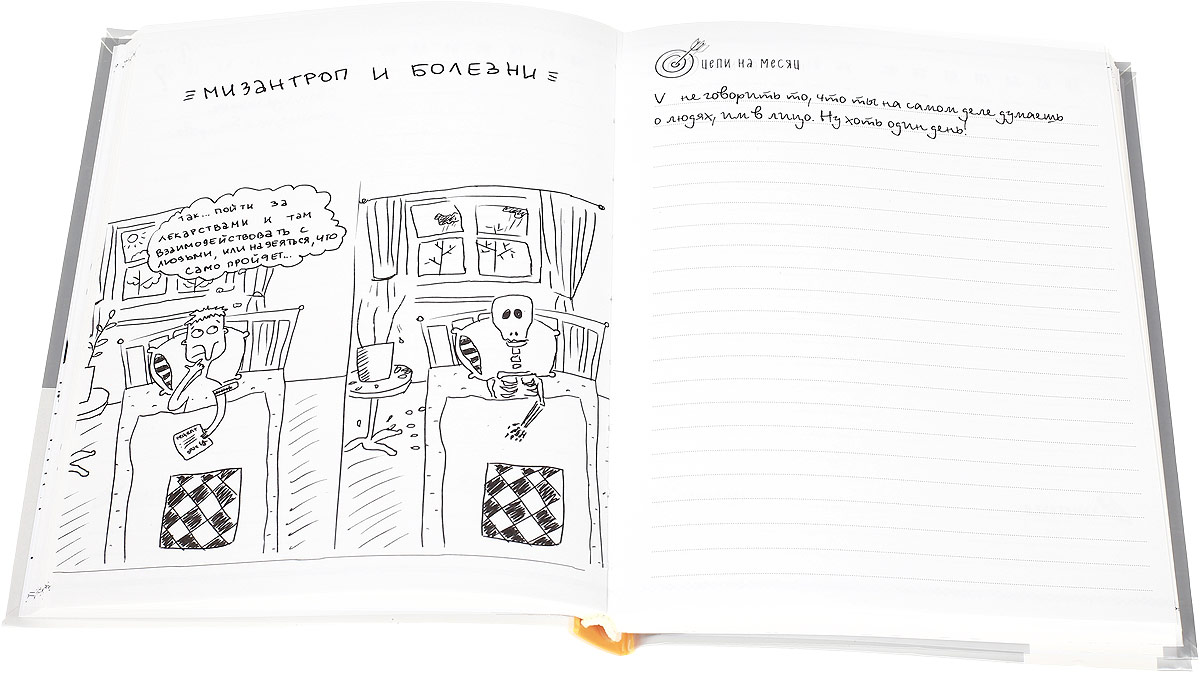 МИЗАНТРОП И БОЛЕЗНИ
ТАК... ПОЙТИ ЗА
ЛЕКАРСТВАМИ И ТАМ
ВЗАИМОДЕЙСТВОВАТЬ С
ЛЮДЬМИ, ИЛИ НАДЕЯТЬСЯ, ЧТО
САМО ПРОЙДЕТ...
РЕЦЕПТ
ЦЕЛИ НА МЕСЯЦ
V не говорить то, что ты на самом деле думаешь
о людях, им в лицо. Ну хоть один день!